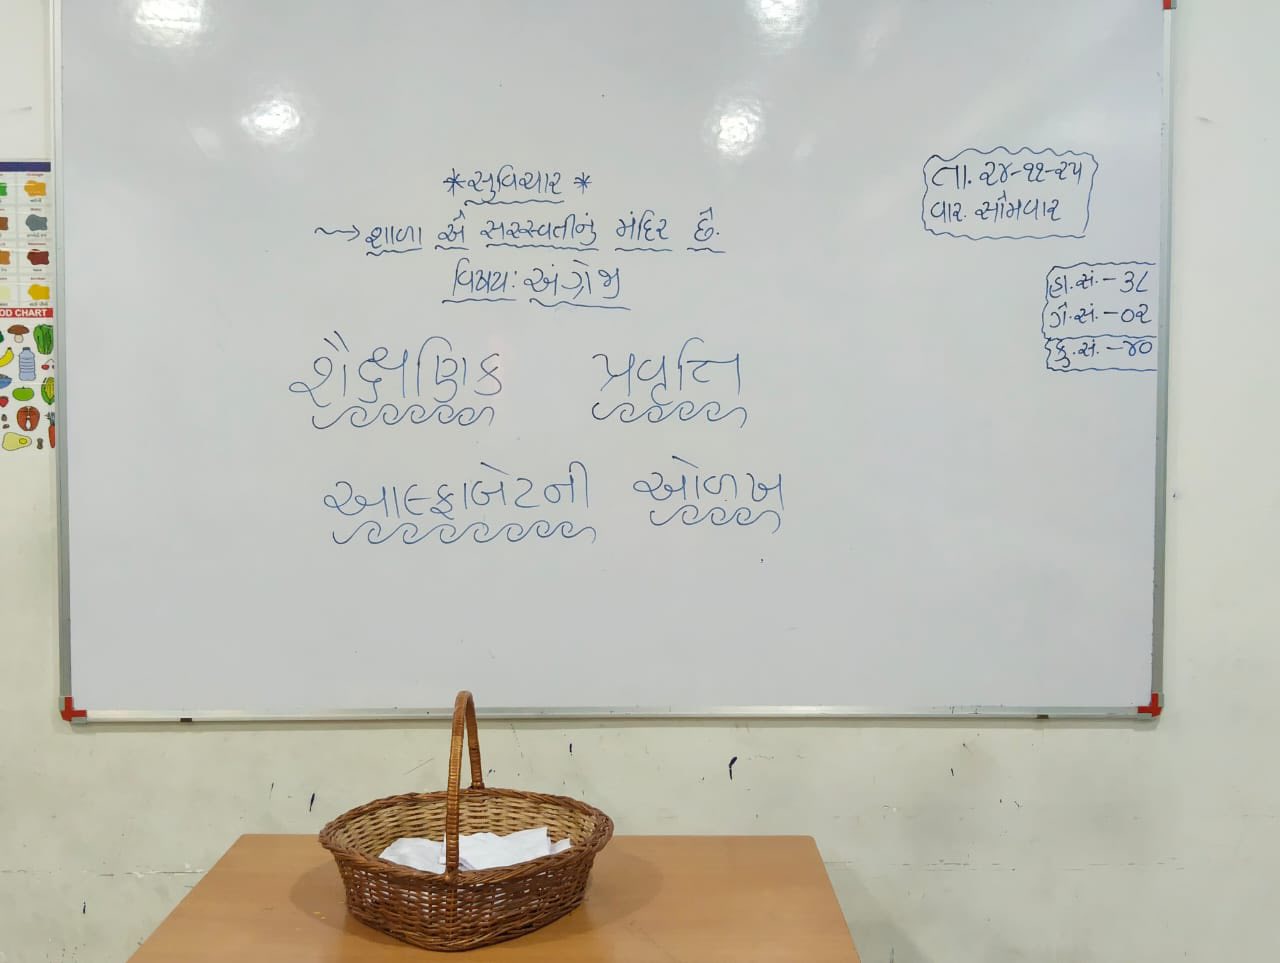 * સુવિચાર *
→ શાળા એ સરસ્વતીનું મંદિર છે.
વિષય: અંગ્રેજી
શૈક્ષણિક પ્રવૃત્તિ
આલ્ફાબેટની ઓળખ
તા. ૨૪-૧૧-૨૫
વાર. સોમવાર
હા.સં. - ૩૮
ગે.સં. - ૦૨
કુ.સં. - ૪૦
OD CHART